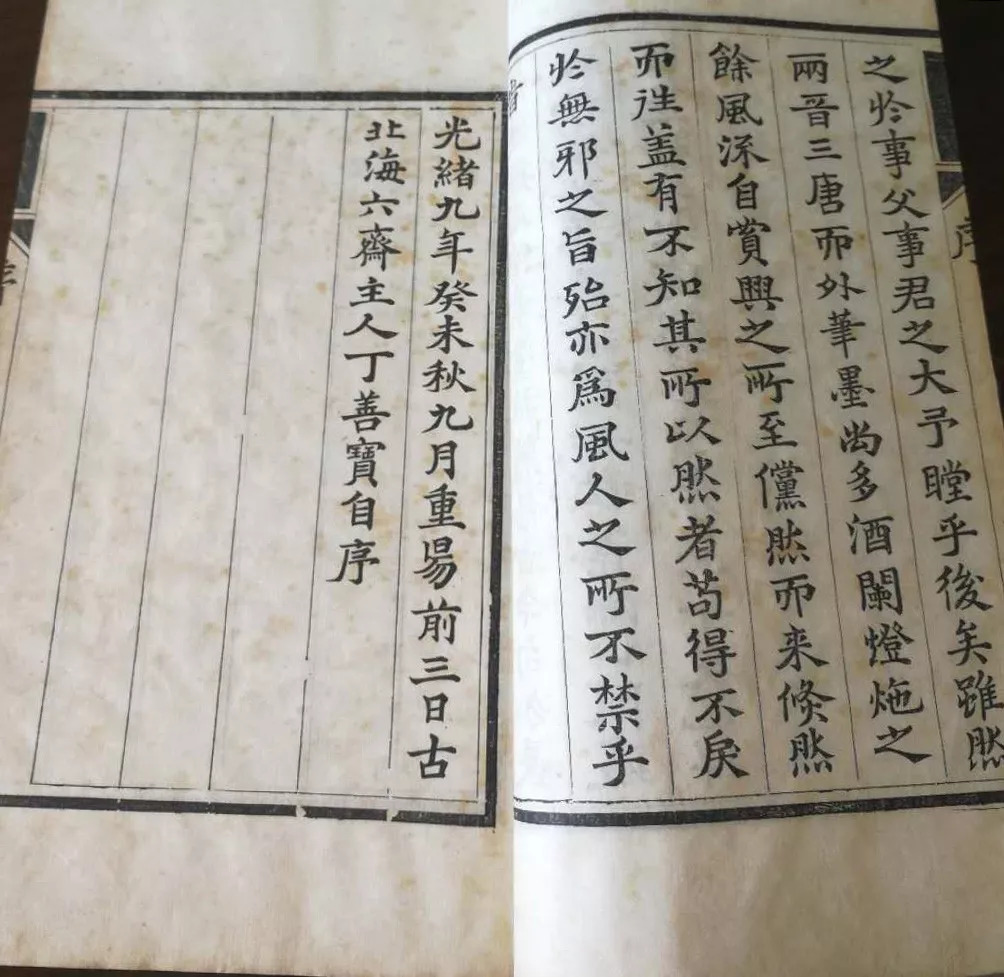 之於事父事君之大予瞠乎後矣雖然
兩晋三唐而外筆墨尚多酒闌燈灺之
餘風流自賞興之所至儻然而来倏然
而往蓋有不知其所以然者苟得不戾
於無邪之旨殆亦爲風人之所不禁乎
光緒九年癸未秋九月重昜前三日古
北海六齋主人丁善寶自序
序